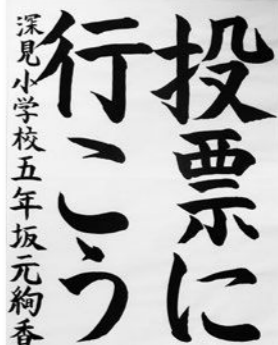 投票に
行こう
深見小学校五年坂元絢香